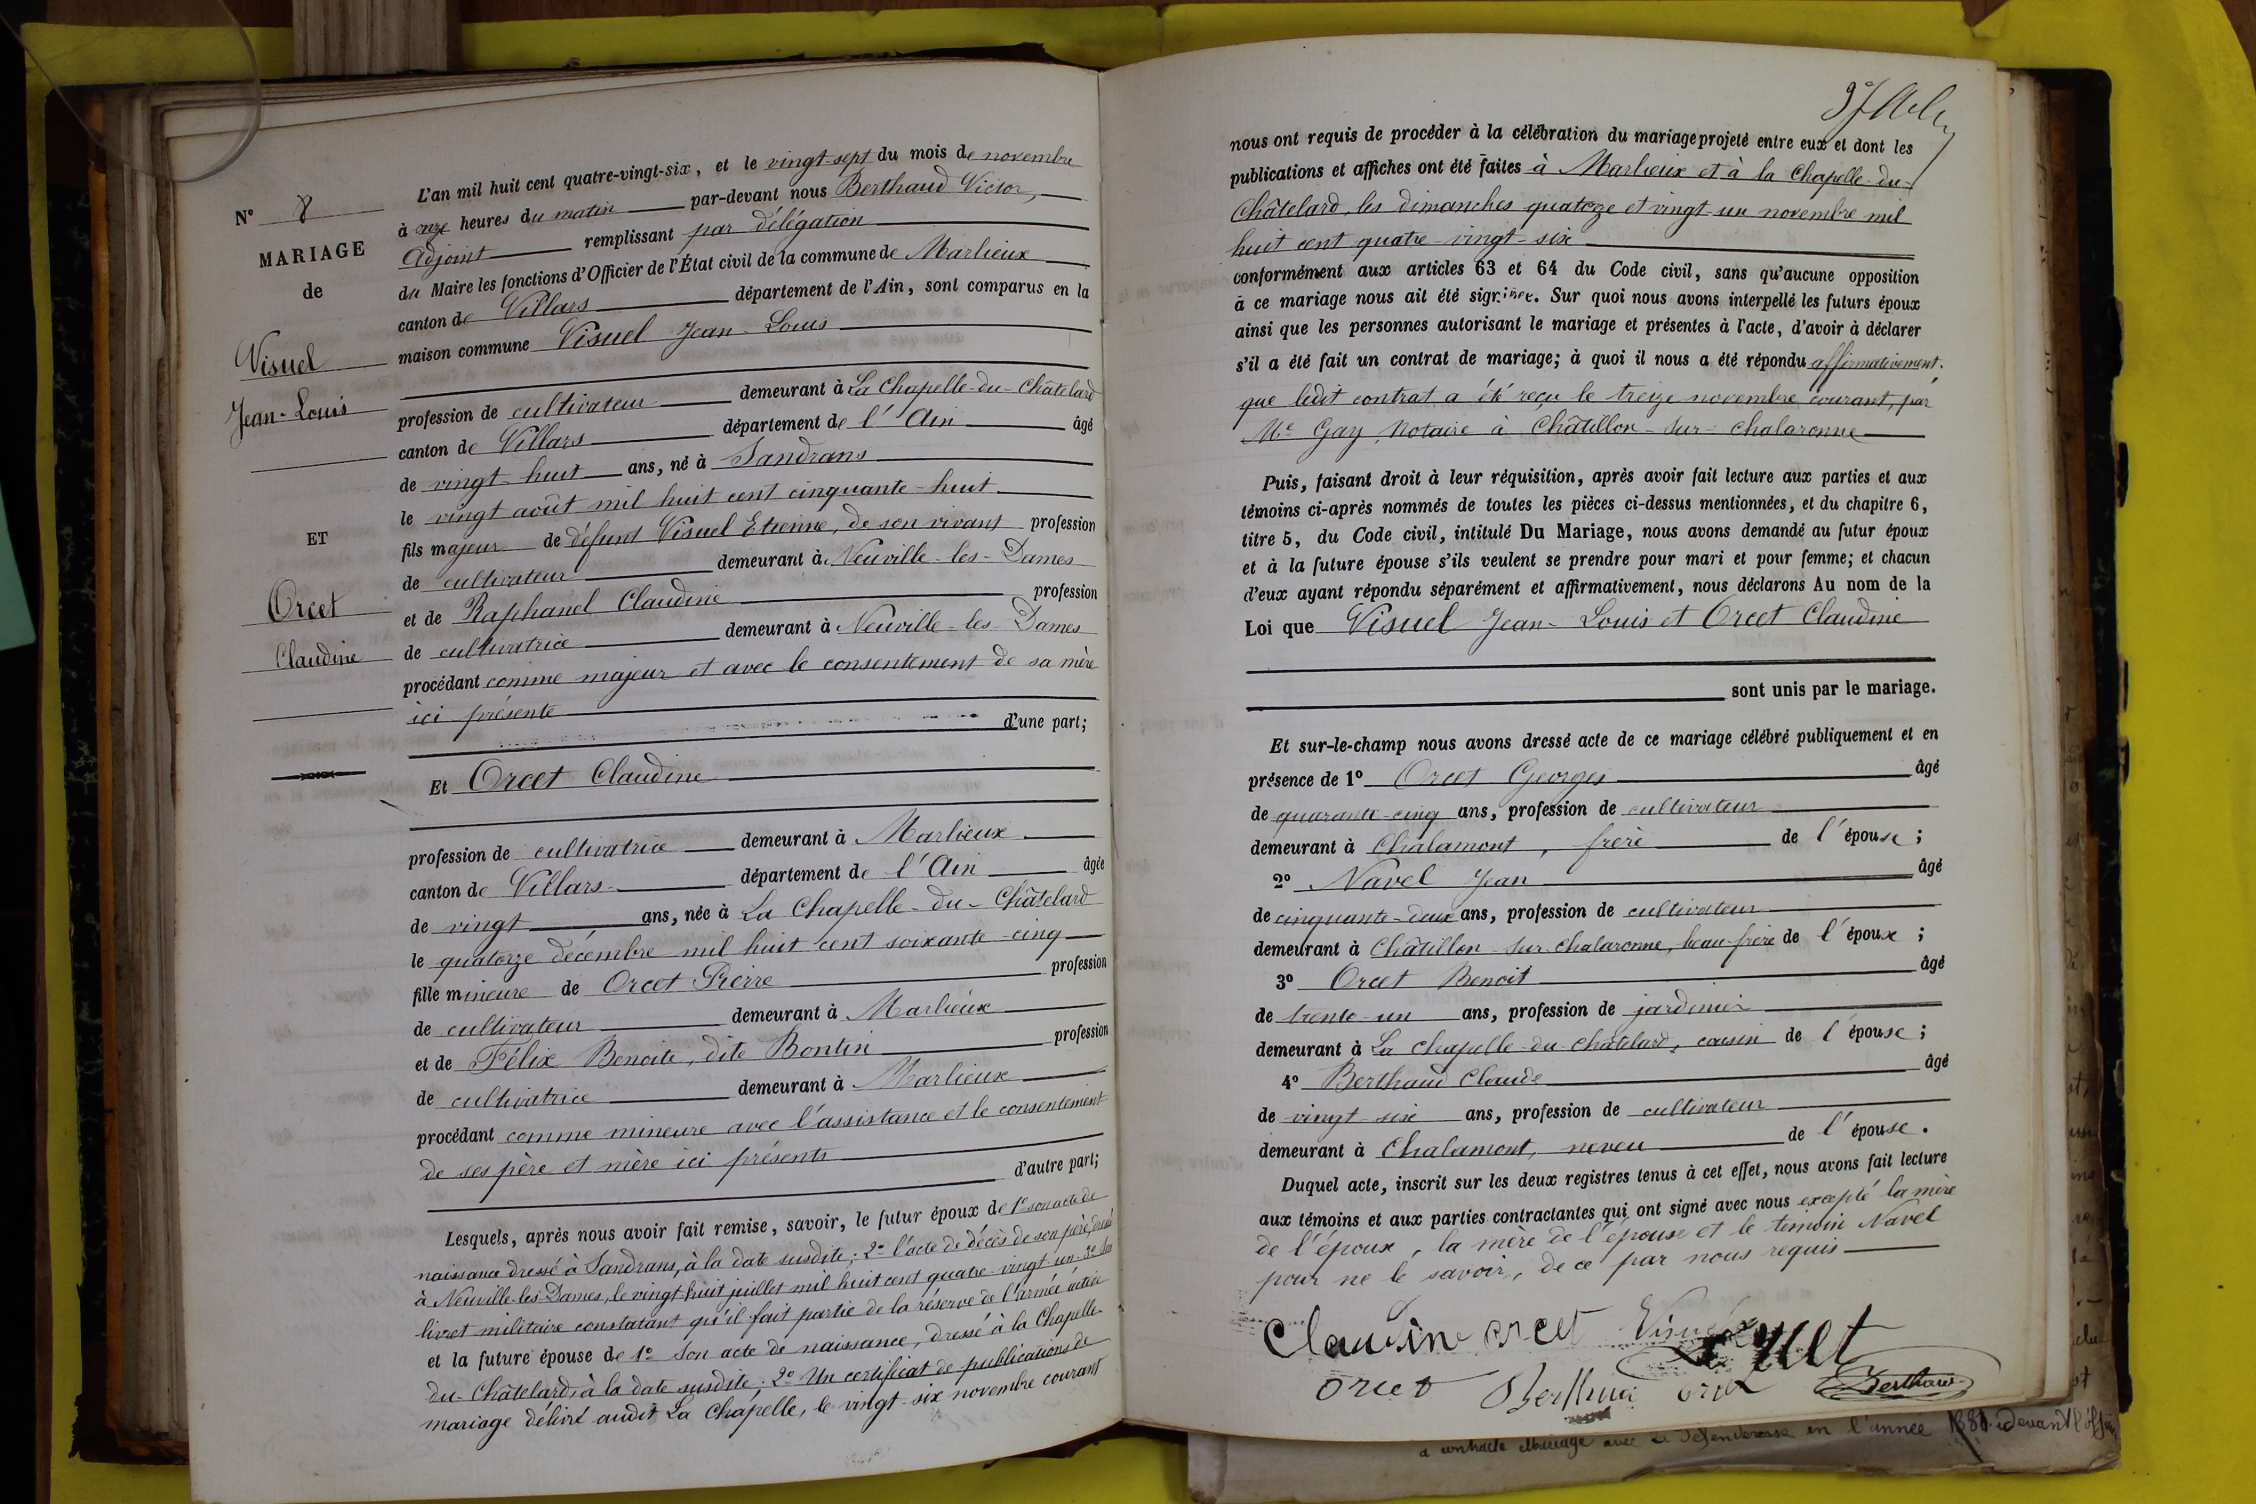 N° 8
MARIAGE
de
Visuel
Jean-Louis
ET
Orcet
Claudine
L'an mil huit cent quatre-vingt-six, et le vingt-sept du mois de novembre
à onze heures du matin par-devant nous Berthaud Victor,
Adjoint remplissant par délégation
du Maire les fonctions d'Officier de l'État civil de la commune de Marlieux
canton de Villars département de l'Ain, sont comparus en la
maison commune Visuel Jean-Louis
profession de cultivateur demeurant à La Chapelle-du-Châtelard
canton de Villars département de l'Ain âgé
de vingt-huit ans, né à Sandrans
le vingt août mil huit cent cinquante-huit
fils majeur de défunt Visuel Etienne, de son vivant profession
de cultivateur demeurant à Neuville-les-Dames
et de Raphanel Claudine profession
de cultivatrice demeurant à Neuville-les-Dames
procédant comme majeur et avec le consentement de sa mère
ici présente
d'une part;
Et Orcet Claudine
profession de cultivatrice demeurant à Marlieux
canton de Villars département de l'Ain âgée
de vingt ans, née à La Chapelle-du-Châtelard
le quatorze décembre mil huit cent soixante-cinq
fille mineure de Orcet Pierre profession
de cultivateur demeurant à Marlieux
et de Félix Benoite, dite Bontin profession
de cultivatrice demeurant à Marlieux
procédant comme mineure avec l'assistance et le consentement
de ses père et mère ici présents
d'autre part;
Lesquels, après nous avoir fait remise, savoir, le futur époux de 1° son acte de
naissance dressé à Sandrans, à la date susdite; 2° l'acte de décès de son père, dressé
à Neuville-les-Dames, le vingt-huit juillet mil huit cent quatre-vingt-un 3° Son
livret militaire constatant qu'il fait partie de la réserve de l'armée active
et la future épouse de 1° Son acte de naissance, dressé à la Chapelle-
du-Châtelard, à la date susdite; 2° Un certificat de publications de
mariage délivré audit La Chapelle, le vingt-six novembre courant
nous ont requis de procéder à la célébration du mariage projeté entre eux et dont les
publications et affiches ont été faites à Marlieux et à la Chapelle-du-
Châtelard, les dimanches quatorze et vingt-un novembre mil
huit cent quatre-vingt-six
conformément aux articles 63 et 64 du Code civil, sans qu'aucune opposition
à ce mariage nous ait été signifiée. Sur quoi nous avons interpellé les futurs époux
ainsi que les personnes autorisant le mariage et présentes à l'acte, d'avoir à déclarer
s'il a été fait un contrat de mariage; à quoi il nous a été répondu affirmativement.
que ledit contrat a été reçu le treize novembre courant, par
Me Gay, Notaire à Châtillon-sur-Chalaronne
Puis, faisant droit à leur réquisition, après avoir fait lecture aux parties et aux
témoins ci-après nommés de toutes les pièces ci-dessus mentionnées, et du chapitre 6,
titre 5, du Code civil, intitulé Du Mariage, nous avons demandé au futur époux
et à la future épouse s'ils veulent se prendre pour mari et pour femme; et chacun
d'eux ayant répondu séparément et affirmativement, nous déclarons Au nom de la
Loi que Visuel Jean-Louis et Orcet Claudine
sont unis par le mariage.
Et sur-le-champ nous avons dressé acte de ce mariage célébré publiquement et en
présence de 1° Orcet Georges âgé
de quarante-cinq ans, profession de cultivateur
demeurant à Chalamont, frère de l'épouse;
2° Navel Jean âgé
de cinquante-deux ans, profession de cultivateur
demeurant à Châtillon-sur-Chalaronne, beau-frère de l'époux;
3° Orcet Benoit âgé
de trente-un ans, profession de jardinier
demeurant à La Chapelle-du-Châtelard, cousin de l'épouse;
4° Berthaud Claude âgé
de vingt-six ans, profession de cultivateur
demeurant à Chalamont, neveu de l'épouse.
Duquel acte, inscrit sur les deux registres tenus à cet effet, nous avons fait lecture
aux témoins et aux parties contractantes qui ont signé avec nous excepté la mère
de l'époux, la mère de l'épouse et le témoin Navel
pour ne le savoir, de ce par nous requis
Claudine orcet Visuel
orcet Berthaud orcet Berthaud
a contracté Mariage avec la Défenderesse en l'année